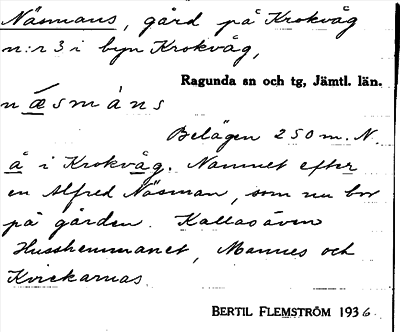 Näsmans, gård på Krokvåg
n:r 3 i byn Krokvåg,
Ragunda sn och tg, Jämtl. län.
næsmàns
Belägen 250 m. N.
å i Krokvåg. Namnet efter
en Alfred Näsman, som nu bor
på gården. Kallas även
Husshemmanet, Mannes och
Kvickarnas
BERTIL FLEMSTRÖM 1936